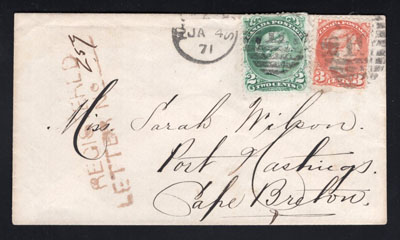 JA 4
71
2 2
TWO CENTS
3 3
257
REGISTERED
LETTER No
Miss Sarah Wilson.
Port Hastings.
Cape Breton.